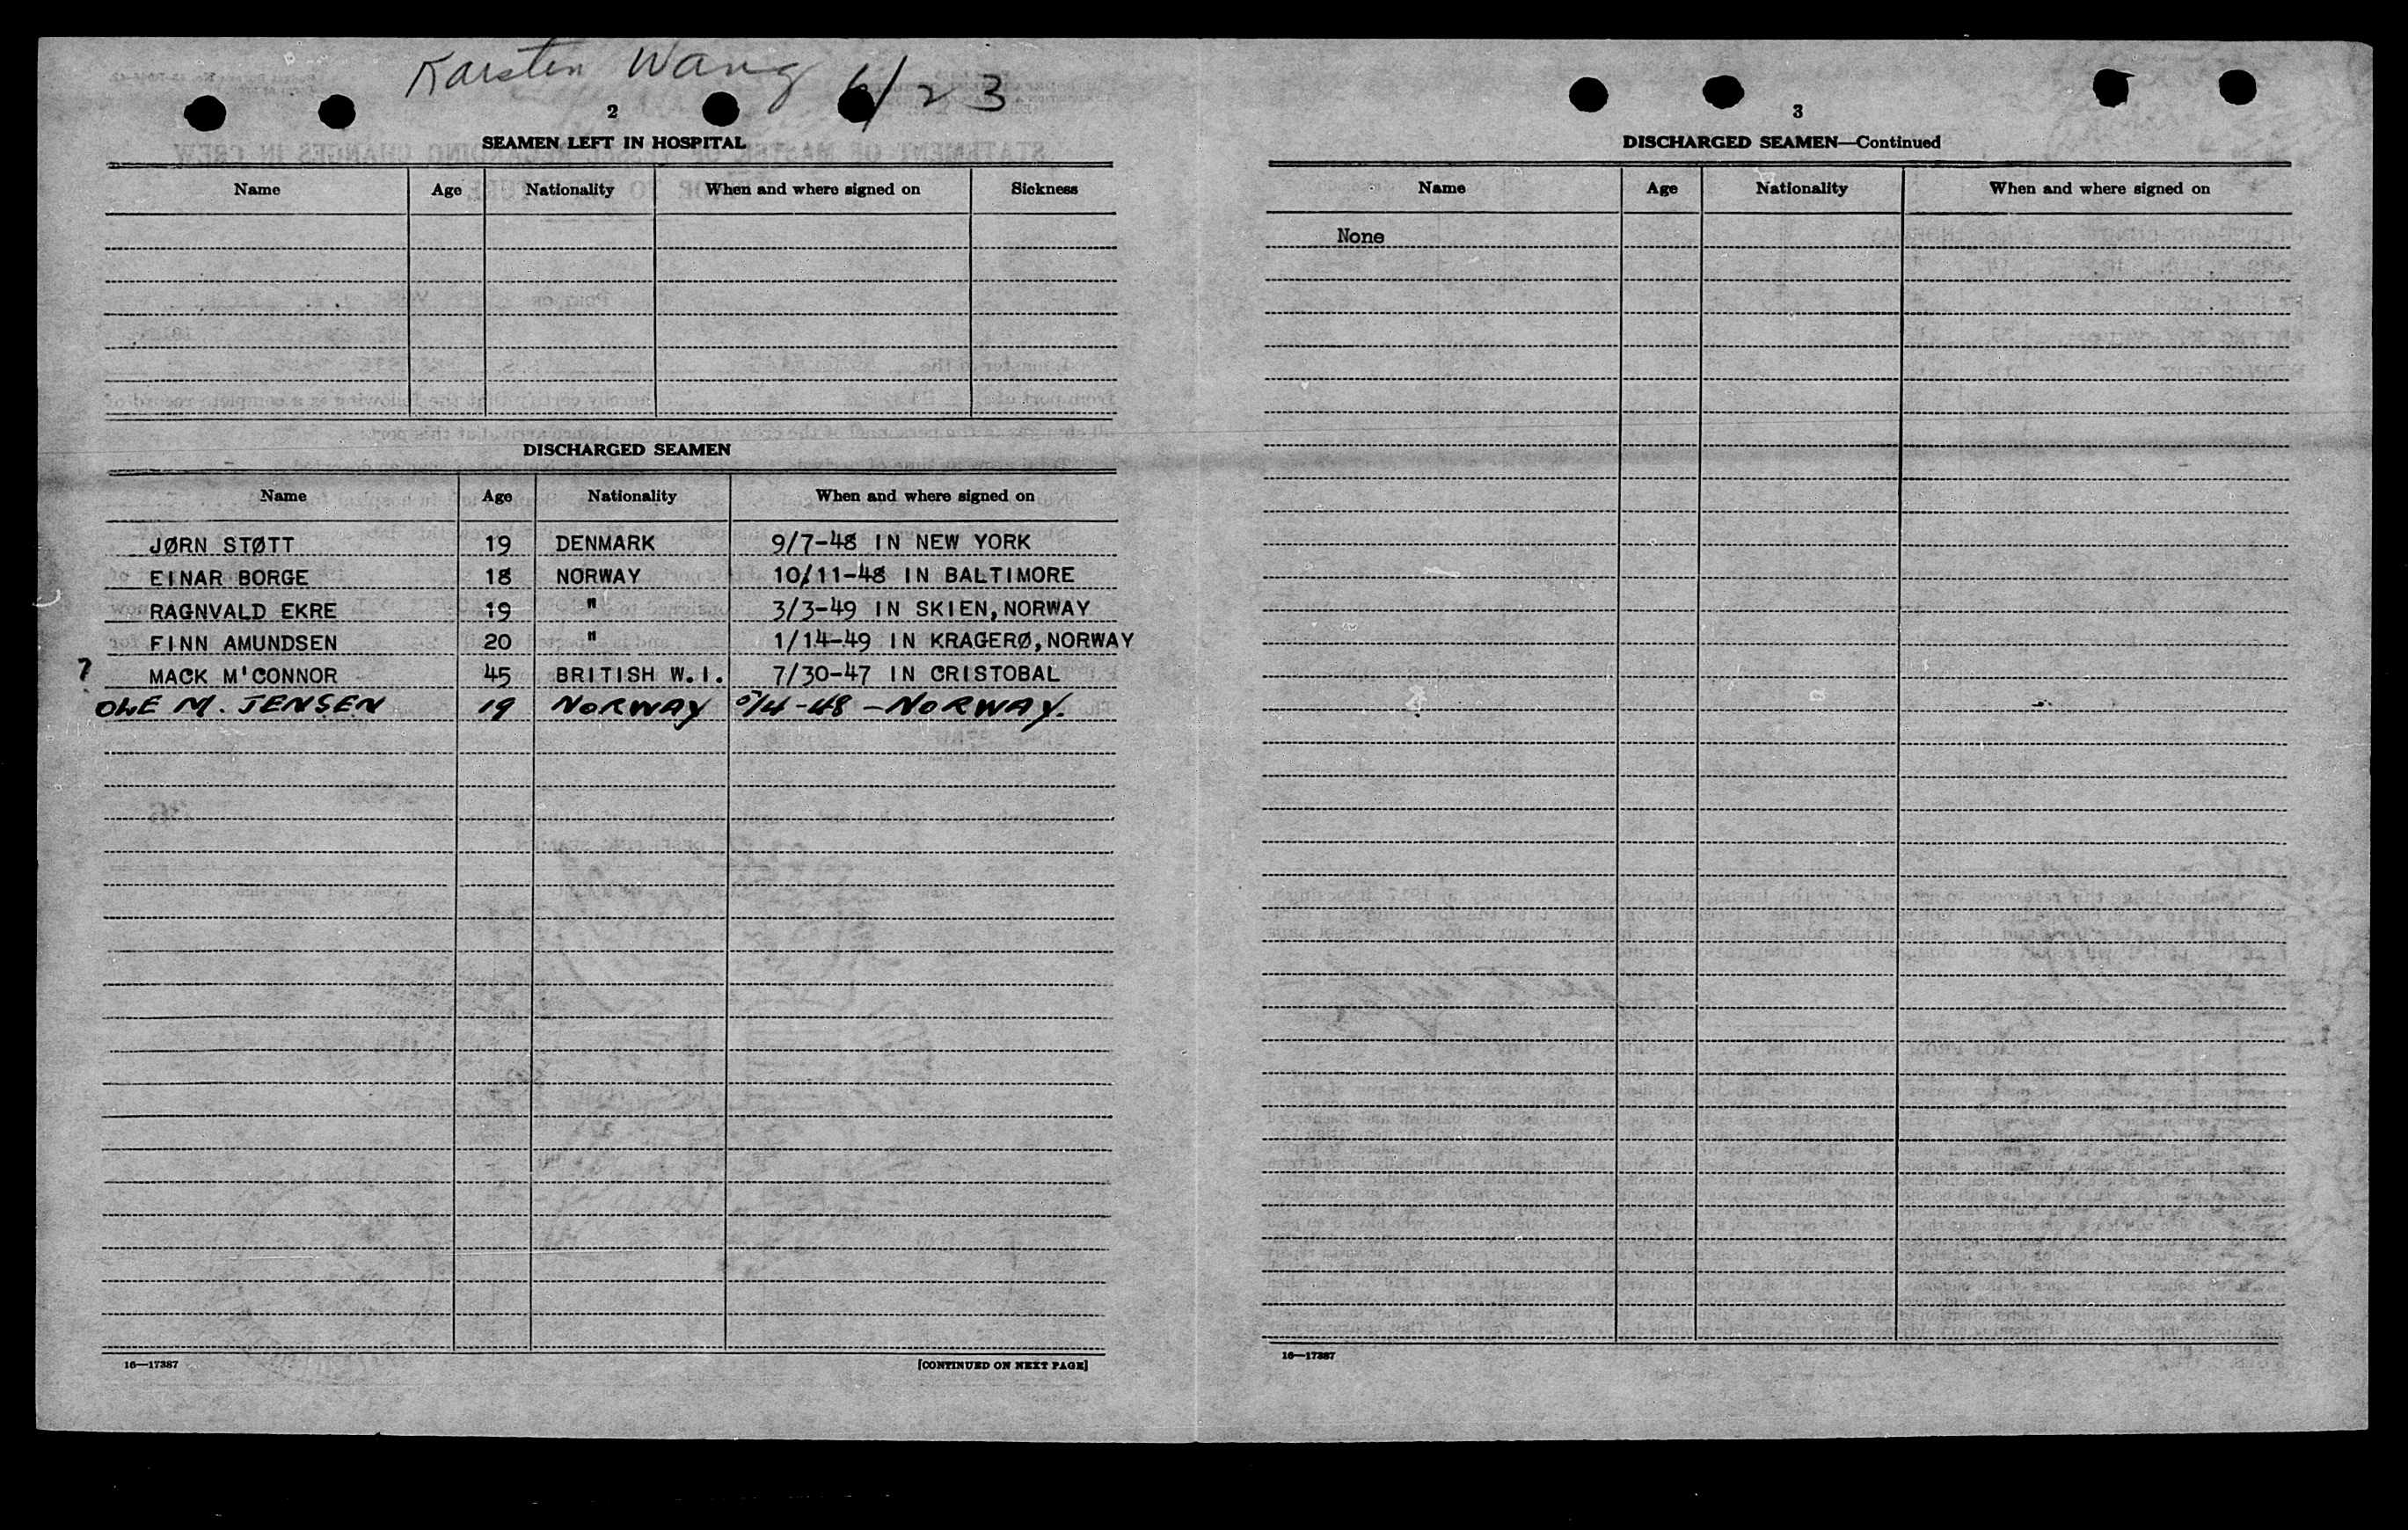 Karsten Wang 6/23
2
SEAMEN LEFT IN HOSPITAL
Name Age Nationality When and where signed on Sickness
DISCHARGED SEAMEN
Name Age Nationality When and where signed on
JØRN STØTT 19 DENMARK 9/7-48 IN NEW YORK
EINAR BORGE 18 NORWAY 10/11-48 IN BALTIMORE
RAGNVALD EKRE 19 " 3/3-49 IN SKIEN, NORWAY
FINN AMUNDSEN 20 " 1/14-49 IN KRAGERØ, NORWAY
? MACK M'CONNOR 45 BRITISH W.I. 7/30-47 IN CRISTOBAL
OLE M. JENSEN 19 NORWAY 5/4-48 - NORWAY.
16—17387 [CONTINUED ON NEXT PAGE]
3
DISCHARGED SEAMEN—Continued
Name Age Nationality When and where signed on
None
16—17387